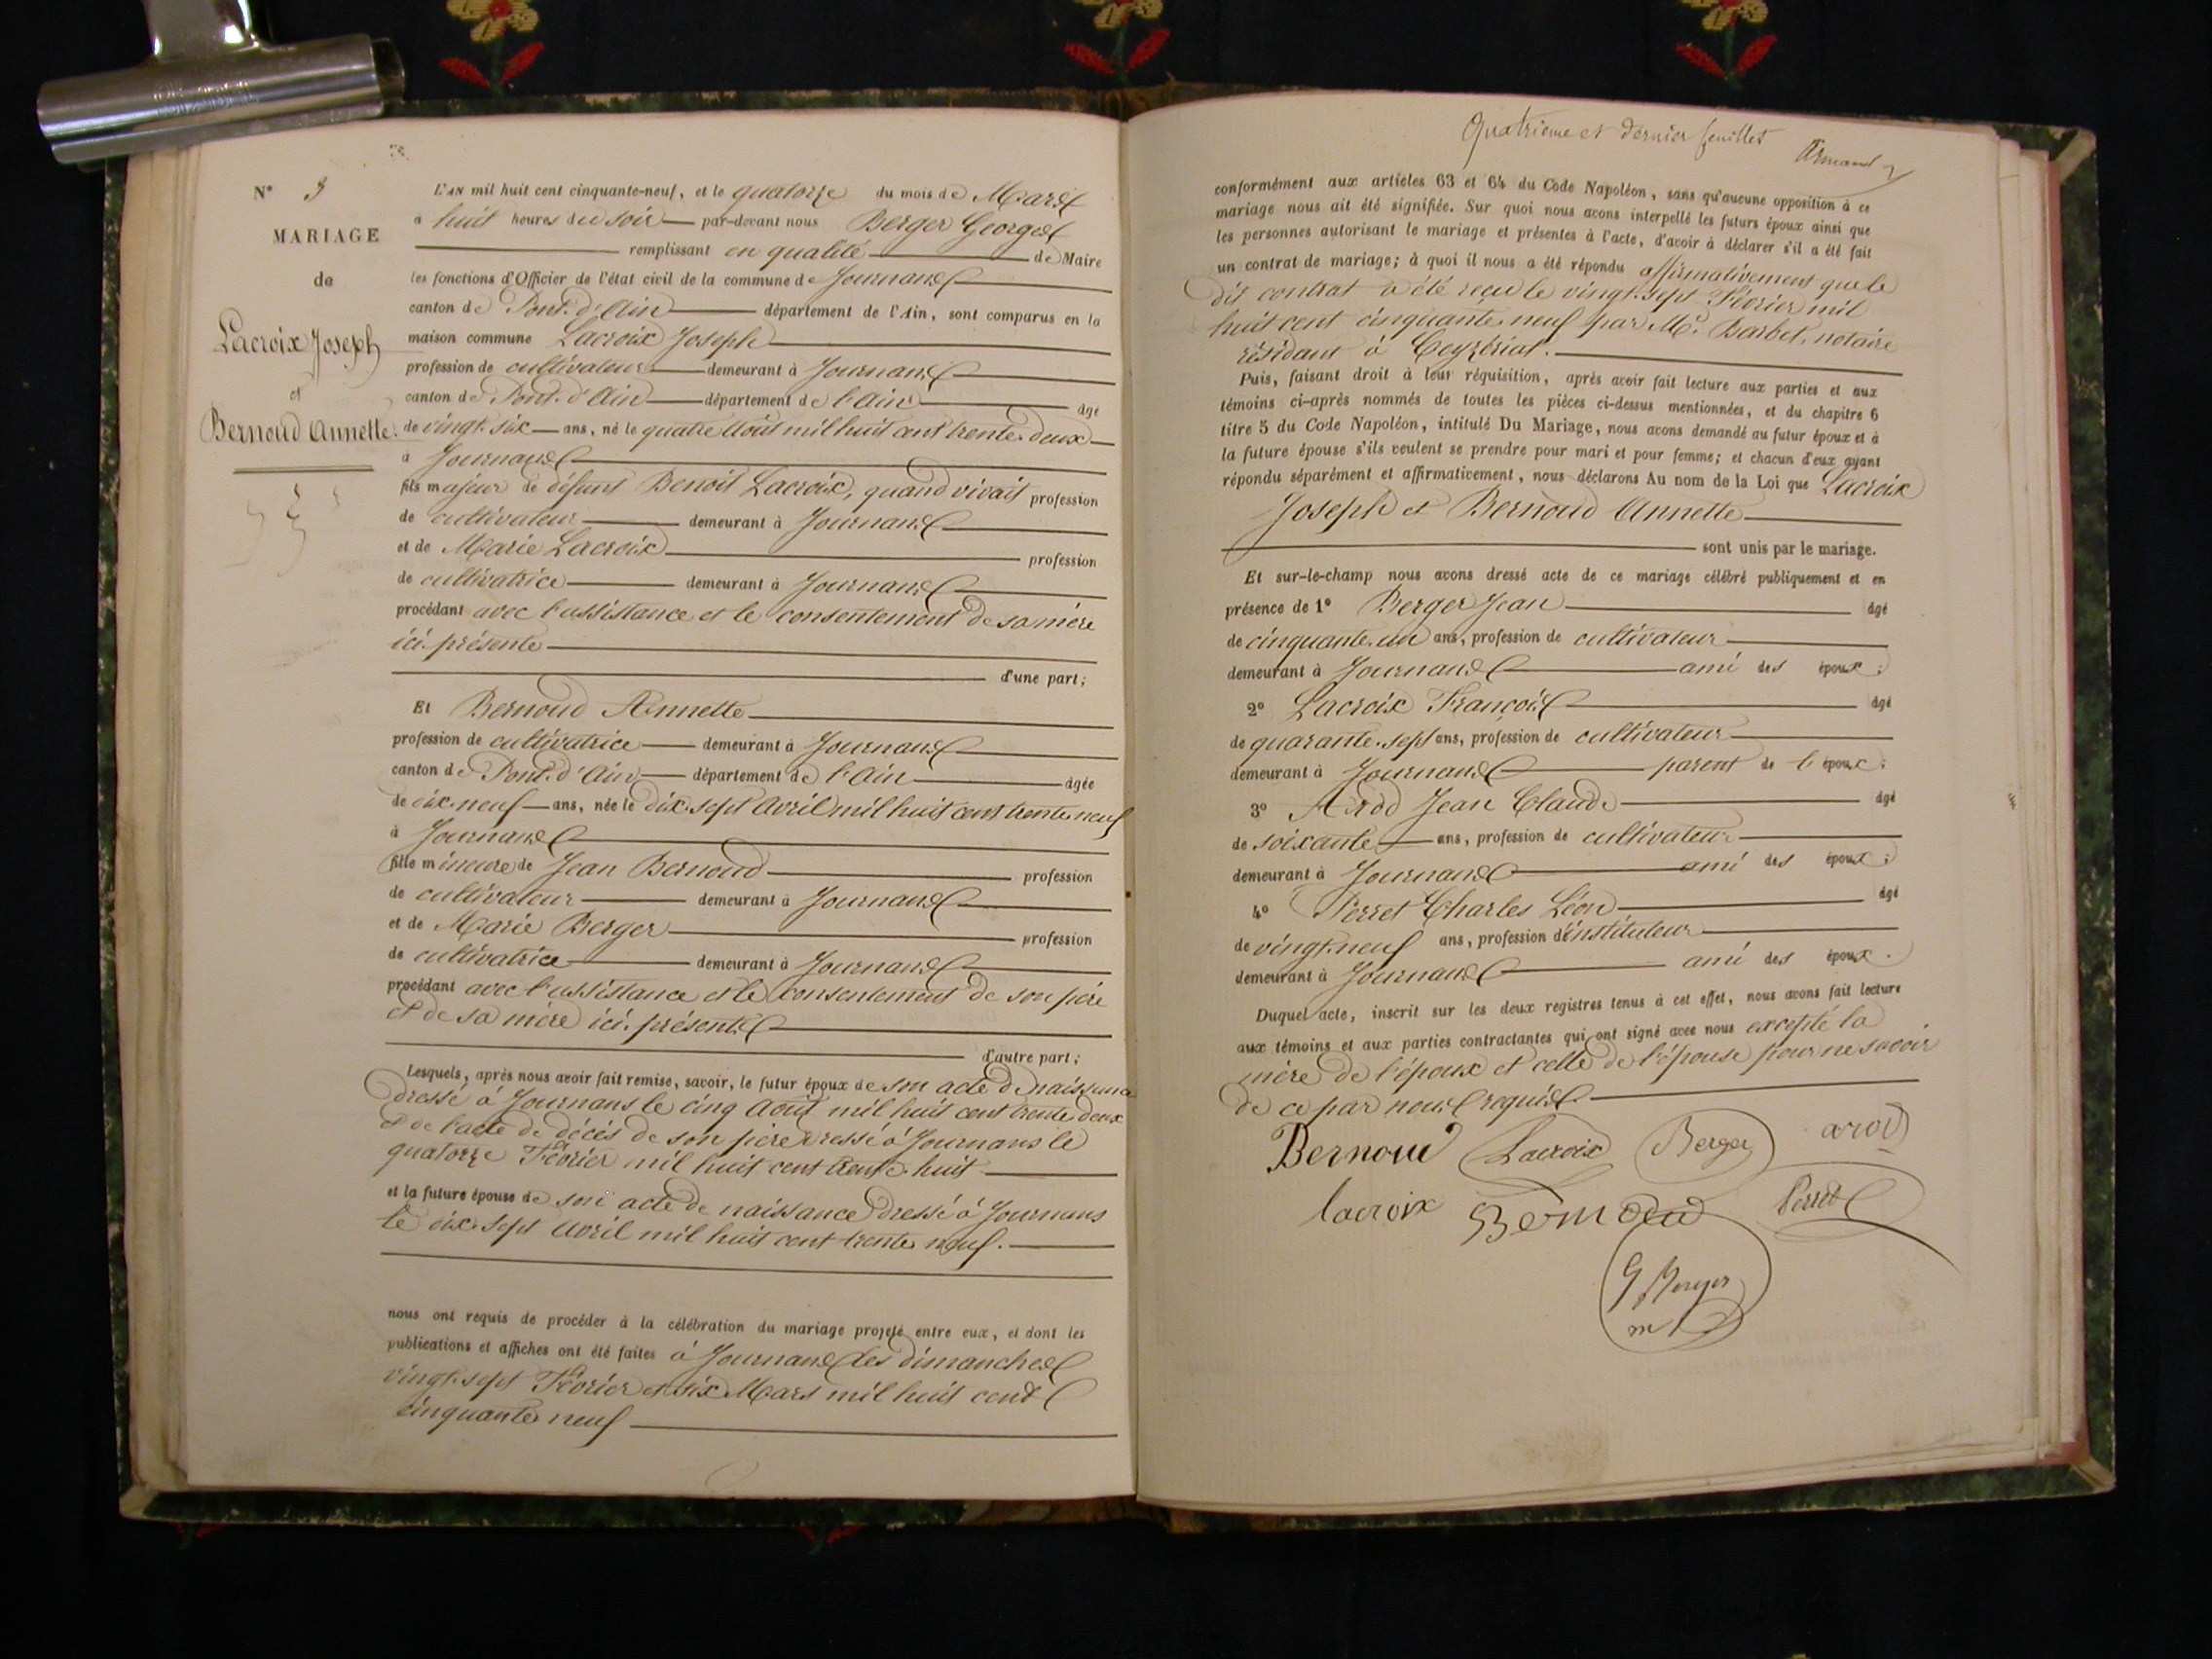 N° 3
MARIAGE
de
Lacroix Joseph
et
Bernoud Annette.
L'AN mil huit cent cinquante-neuf, et le quatorze du mois de Mars
à huit heures du soir par-devant nous Berger Georges
remplissant en qualité de Maire
les fonctions d'Officier de l'état civil de la commune de Journans
canton de Pont-d'Ain département de l'Ain, sont comparus en la
maison commune Lacroix Joseph
profession de cultivateur demeurant à Journans
canton de Pont-d'Ain département de l'Ain âgé
de vingt-six ans, né le quatre Août mil huit cent trente-deux
à Journans
fils majeur de défunt Benoit Lacroix, quand vivait profession
de cultivateur demeurant à Journans
et de Marie Lacroix profession
de cultivatrice demeurant à Journans
procédant avec l'assistance et le consentement de sa mère
ici présente
d'une part;
Et Bernoud Annette
profession de cultivatrice demeurant à Journans
canton de Pont-d'Ain département de l'Ain âgée
de dix-neuf ans, née le dix-sept Avril mil huit cent trente-neuf
à Journans
fille mineure de Jean Bernoud profession
de cultivateur demeurant à Journans
et de Marie Berger profession
de cultivatrice demeurant à Journans
procédant avec l'assistance et le consentement de son père
et de sa mère ici présents
d'autre part;
Lesquels, après nous avoir fait remise, savoir, le futur époux de son acte de naissance
dressé à Journans le cinq Août mil huit cent trente-deux
et de l'acte de décès de son père dressé à Journans le
quatorze Février mil huit cent trente-huit
et la future épouse de son acte de naissance dressé à Journans
le dix-sept Avril mil huit cent trente-neuf.
nous ont requis de procéder à la célébration du mariage projeté entre eux, et dont les
publications et affiches ont été faites à Journans les dimanches
vingt-sept Février et six Mars mil huit cent
cinquante-neuf
Quatrième et dernier feuillet
Armand
conformément aux articles 63 et 64 du Code Napoléon, sans qu'aucune opposition à ce
mariage nous ait été signifiée. Sur quoi nous avons interpellé les futurs époux ainsi que
les personnes autorisant le mariage et présentes à l'acte, d'avoir à déclarer s'il a été fait
un contrat de mariage; à quoi il nous a été répondu affirmativement que le
dit contrat a été reçu le vingt-sept Février mil
huit cent cinquante-neuf par Me. Barbet, notaire
résidant à Ceyzériat.
Puis, faisant droit à leur réquisition, après avoir fait lecture aux parties et aux
témoins ci-après nommés de toutes les pièces ci-dessus mentionnées, et du chapitre 6
titre 5 du Code Napoléon, intitulé Du Mariage, nous avons demandé au futur époux et à
la future épouse s'ils veulent se prendre pour mari et pour femme; et chacun d'eux ayant
répondu séparément et affirmativement, nous déclarons Au nom de la Loi que Lacroix
Joseph et Bernoud Annette
sont unis par le mariage.
Et sur-le-champ nous avons dressé acte de ce mariage célébré publiquement et en
présence de 1° Berger Jean âgé
de cinquante-un ans, profession de cultivateur
demeurant à Journans ami des époux;
2° Lacroix François âgé
de quarante-sept ans, profession de cultivateur
demeurant à Journans parent de l'époux;
3° Arod Jean Claude âgé
de soixante ans, profession de cultivateur
demeurant à Journans ami des époux;
4° Perret Charles Léon âgé
de vingt-neuf ans, profession d'instituteur
demeurant à Journans ami des époux.
Duquel acte, inscrit sur les deux registres tenus à cet effet, nous avons fait lecture
aux témoins et aux parties contractantes qui ont signé avec nous excepté la
mère de l'époux et celle de l'épouse pour ne savoir
de ce par nous requis
Bernoud Lacroix Berger arod
lacroix Bernoud Perret
G Berger
m